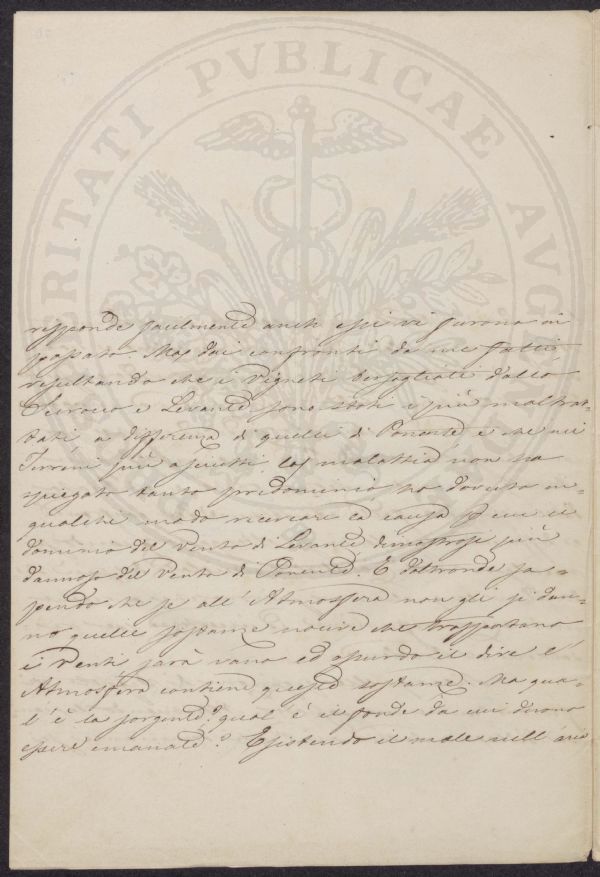 PVBLICAE
risponde facilmente anch essi vi furono in
passato. Ma dai confronti da me fatti
resultando che i Vigneti bersagliati dallo
Scirocco e Levante sono stati i più maltrat-
tati a differenza di quelli di Ponente e che nei
Terreni più asciutti la malattia non ha
spiegato tanto predominio, ho dovuto in
qualche modo ricercare la causa cui il
dominio del Vento di Levante dimostrasi più
dannoso del Vento di Ponente. E d'altronde sa-
pendo che se all'Atmosfera non gli si dan-
no quelle sostanze nocive che trasportano
i Venti, sarà vano ed assurdo il dire l'
Atmosfera contiene queste sostanze. Ma qua-
l'è la sorgente? qual è il fonde da cui devono
essere emanate? Esistendo il male nell'aria